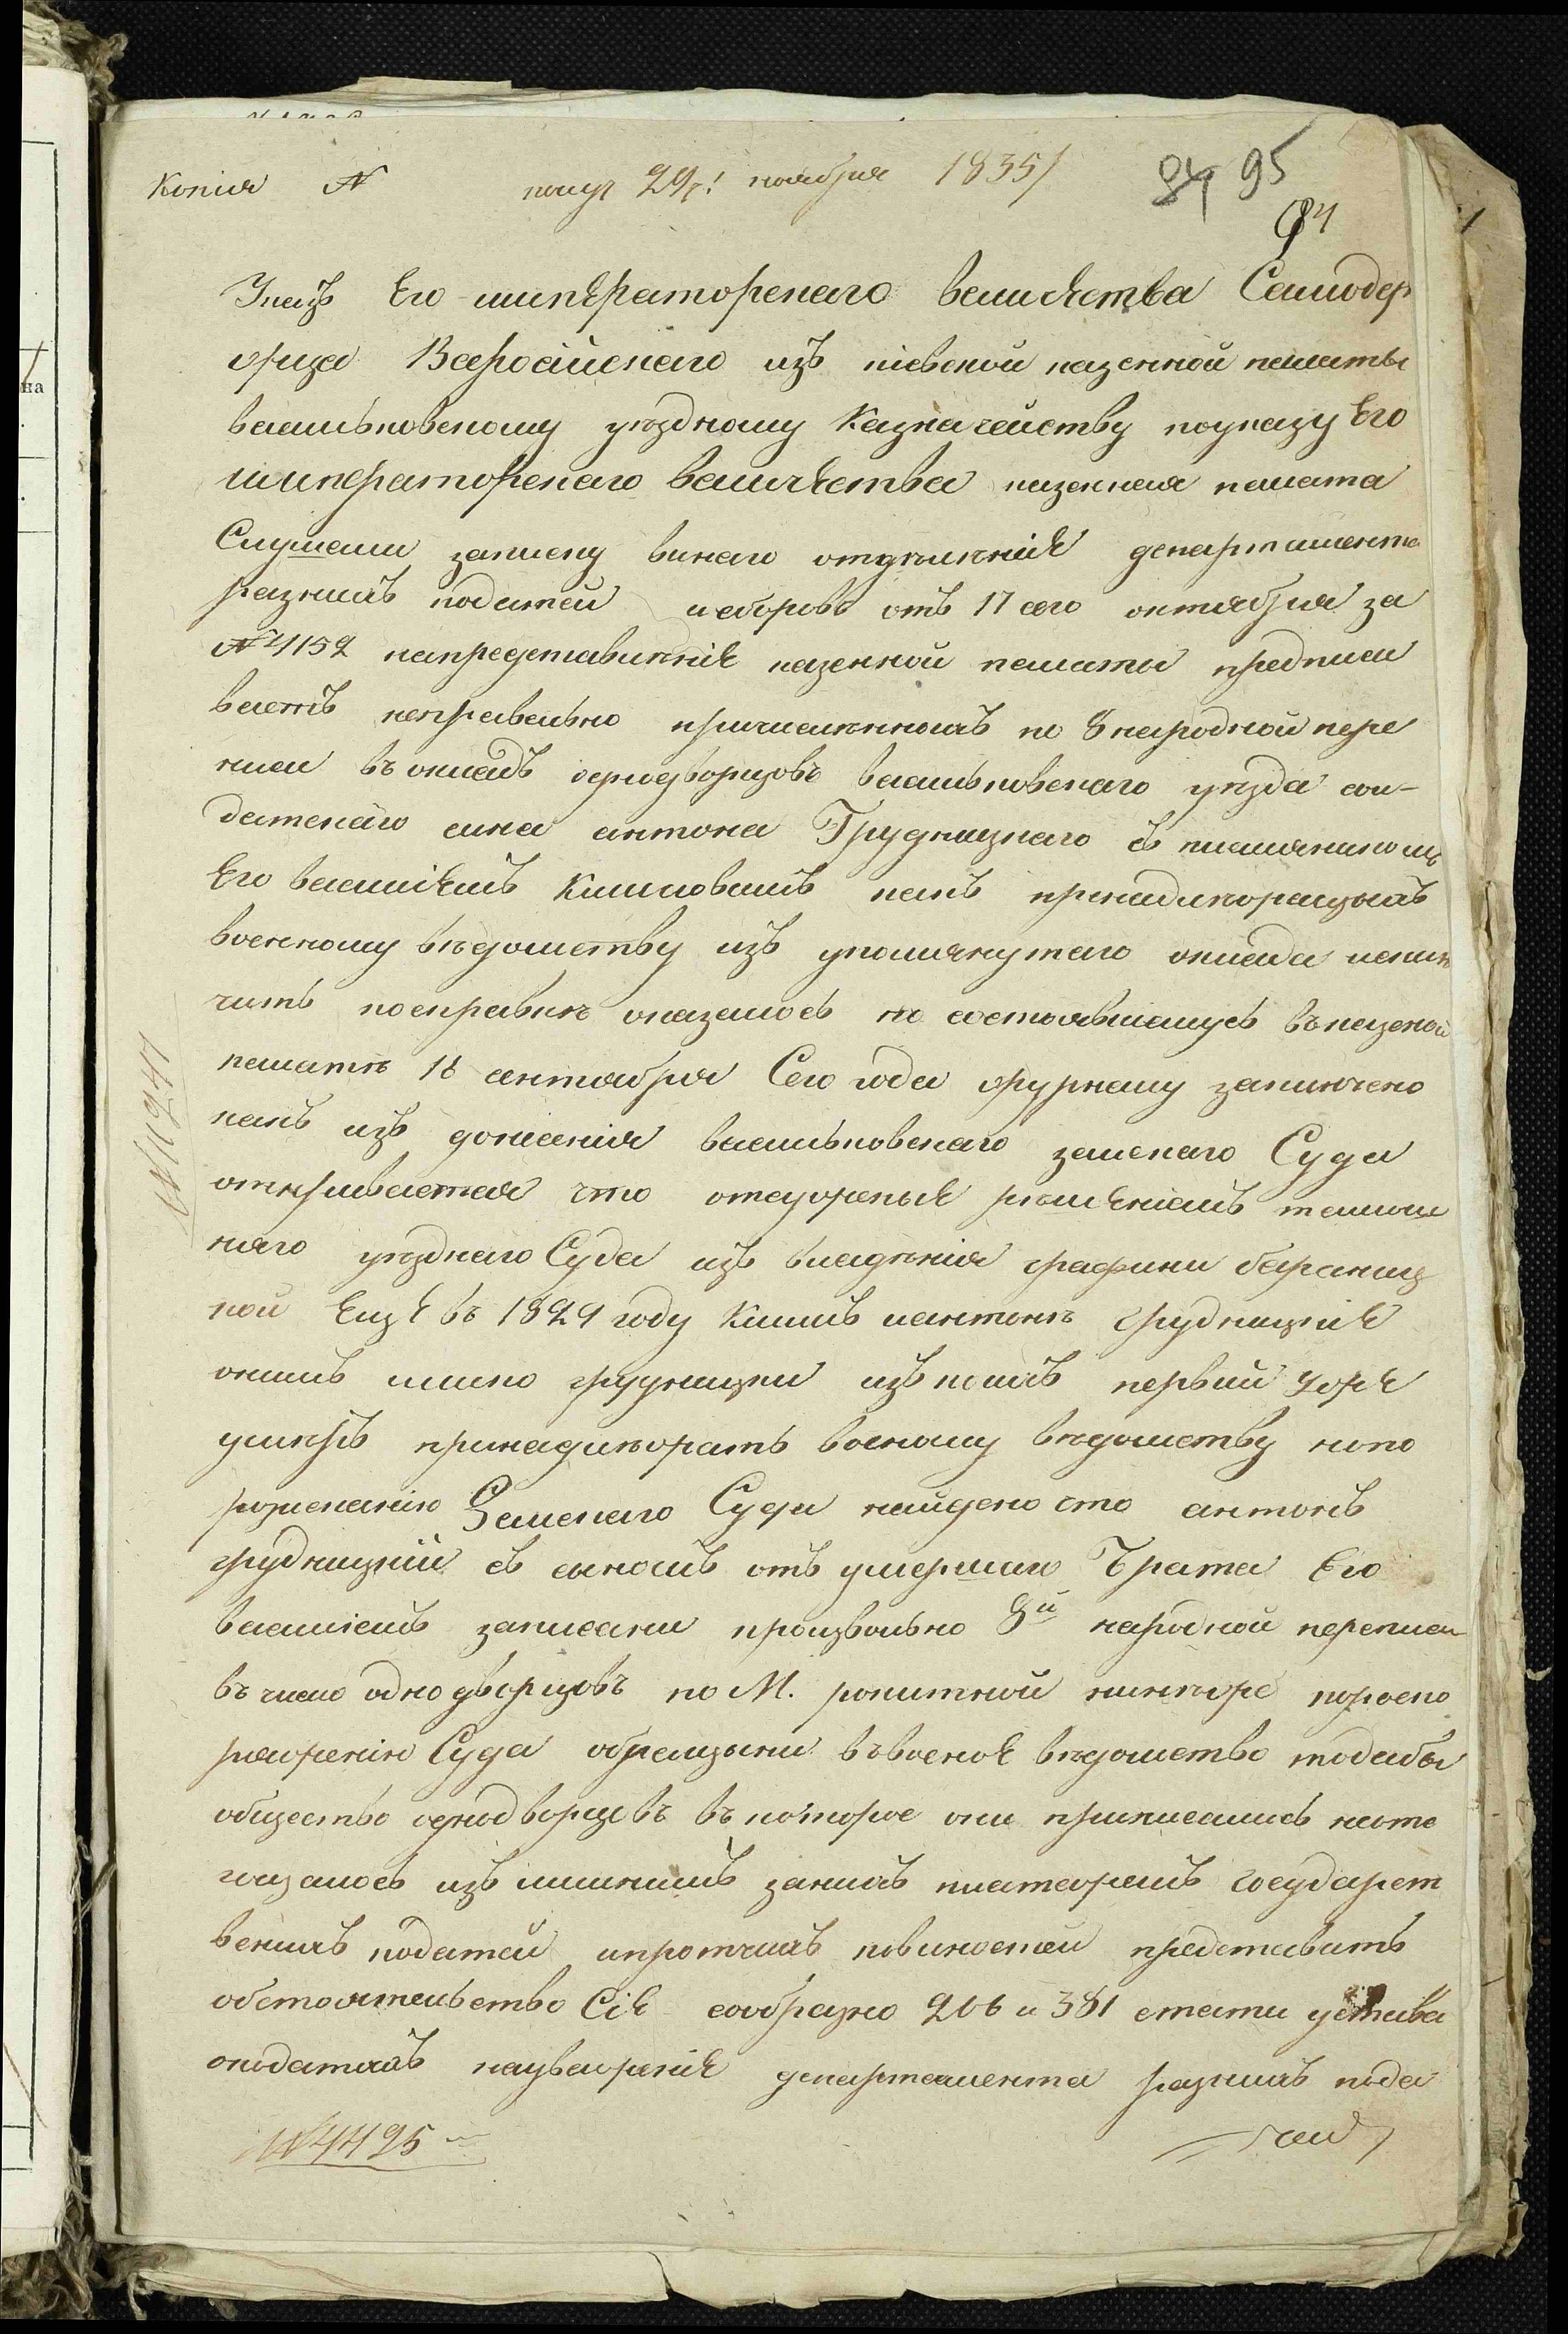 Копия №
получ 29г. ноября 1835/
84 95
94
Указъ Его императорскаго величества Самодер
жца Всеросійскаго изъ кіевской казенной палаты
васильковскому уездному казначейству поуказу Его
императорскаго величества казенная палата
Слушали записку винаго отделенія департамента
разныхъ податей исборовъ отъ 17 сего октября за
№ 4152 напредставленіе казенной палаты предписы
ваетъ неправельно причисленныхъ по 8 народной пере
писи въ окладъ однодворцовъ васильковскаго уезда сол-
датскаго сина антона Грудницкаго съ племянникомъ
Его василіемъ Климовымъ какъ пренадлежащихъ
военному ведомству изъ упомянутаго оклада исклю
чить посправке оказалось по состоявшемуся въказеной
палате 18 октября Сего года журналу заключено
какъ изъ донесенія васильковскаго земскаго Суда
открывается что отсужденые решеніемъ
каго уезднаго Суда изъ владенія графини браниц
кой Еще въ 1829 году Климъ иантонъ грудницкие
онижъ грудницки изъкоихъ первый уже
умеръ принадлежатъ военому ведомству нопо
розисканію Земскаго Суда найдено что антонъ
грудницкій съ сыномъ отъ умершаго Брата Его
василіемъ записани произвольно 8й народной переписи
въ число однодворцовъ по М. рокитной нинеже пораспо
ряженію Суда обращены въвоеное ведомство тодабы
общество однодворцовъ въ которое они приписались неотя
гощалось излишнимъ занихъ платежемъ государст
веныхъ податей ипротчихъ повиностей представить
обстоятельство Сіе сообразно 206 и 381 статьи устава
оподатяхъ науваженіе департамента разныхъ пода
№ 4495
тей
№ 11241